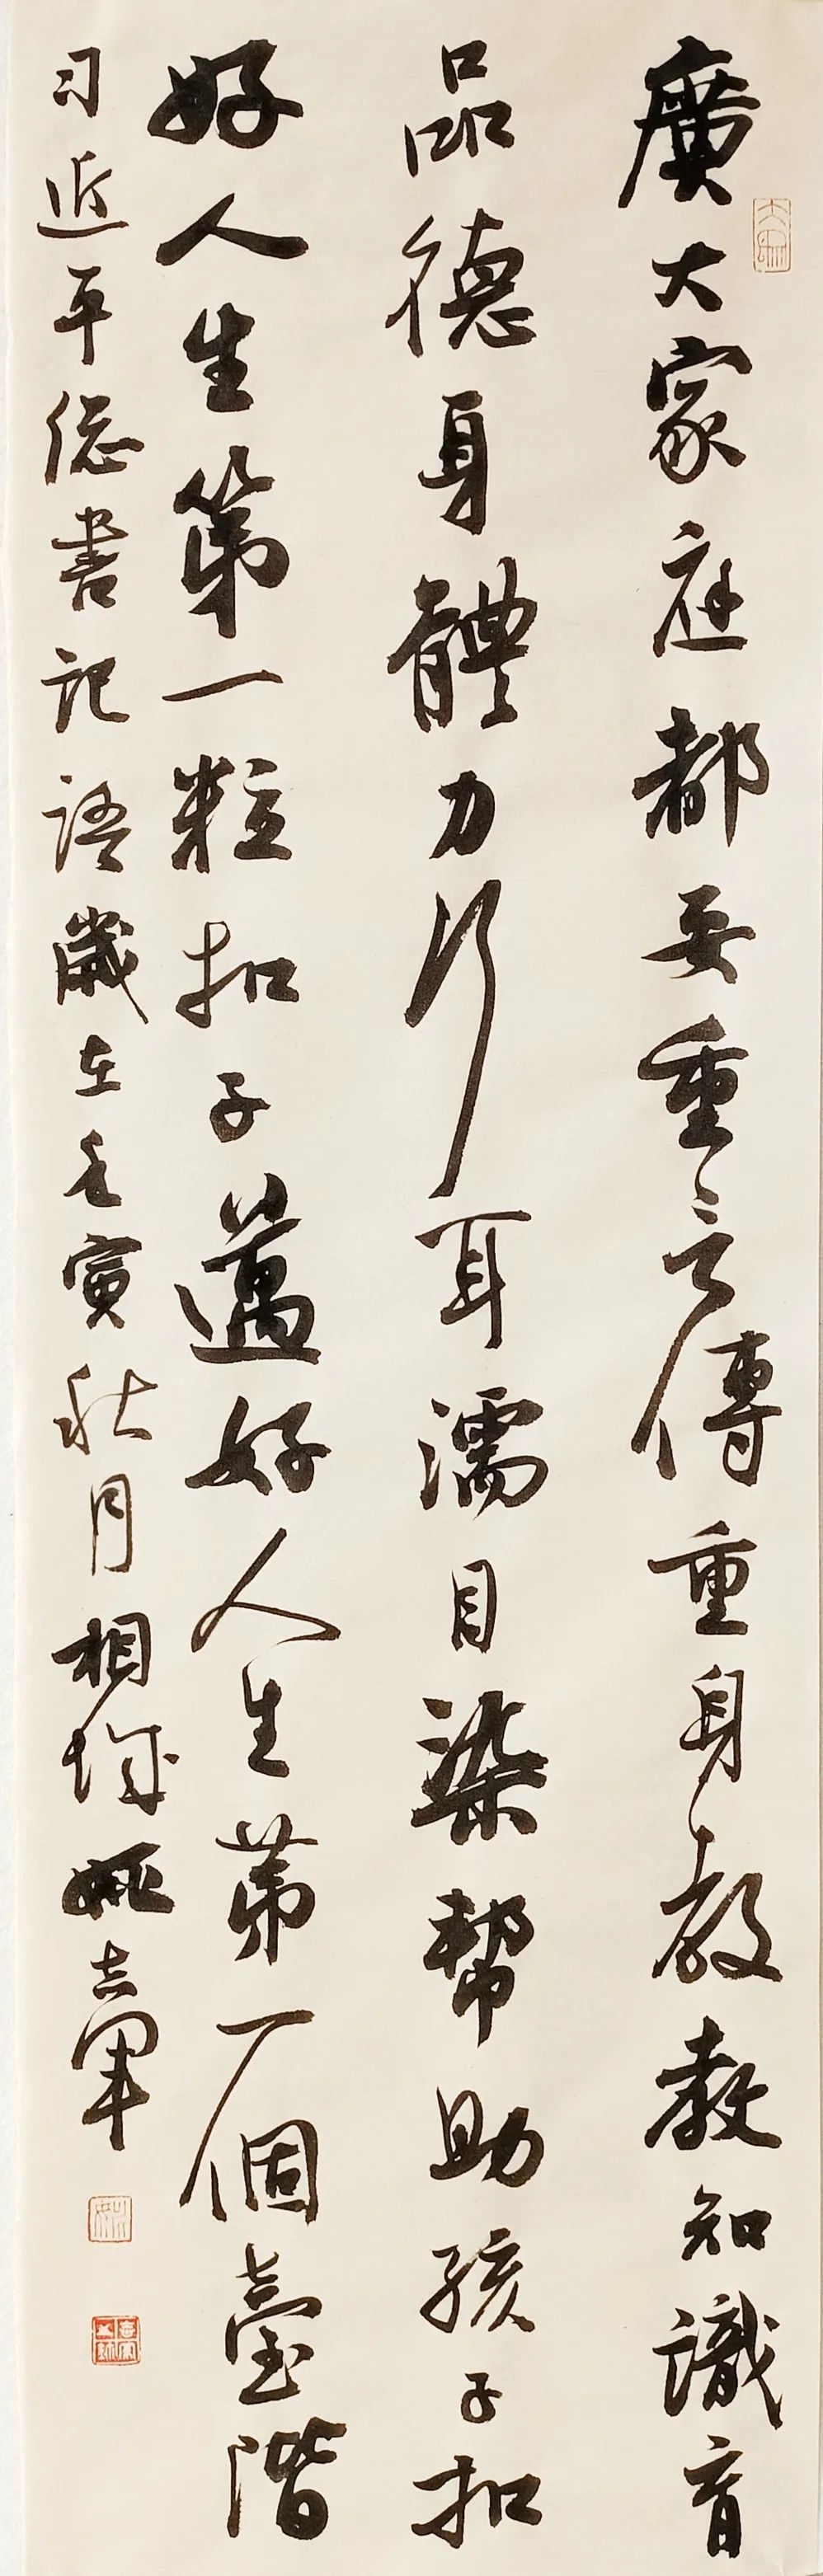 廣大家庭都要重言傳重身教教知識育
品德身體力行耳濡目染帮助孩子扣
好人生第一粒扣子邁好人生第一個臺階
习近平總書記語歲在壬寅秋月相城姚志軍